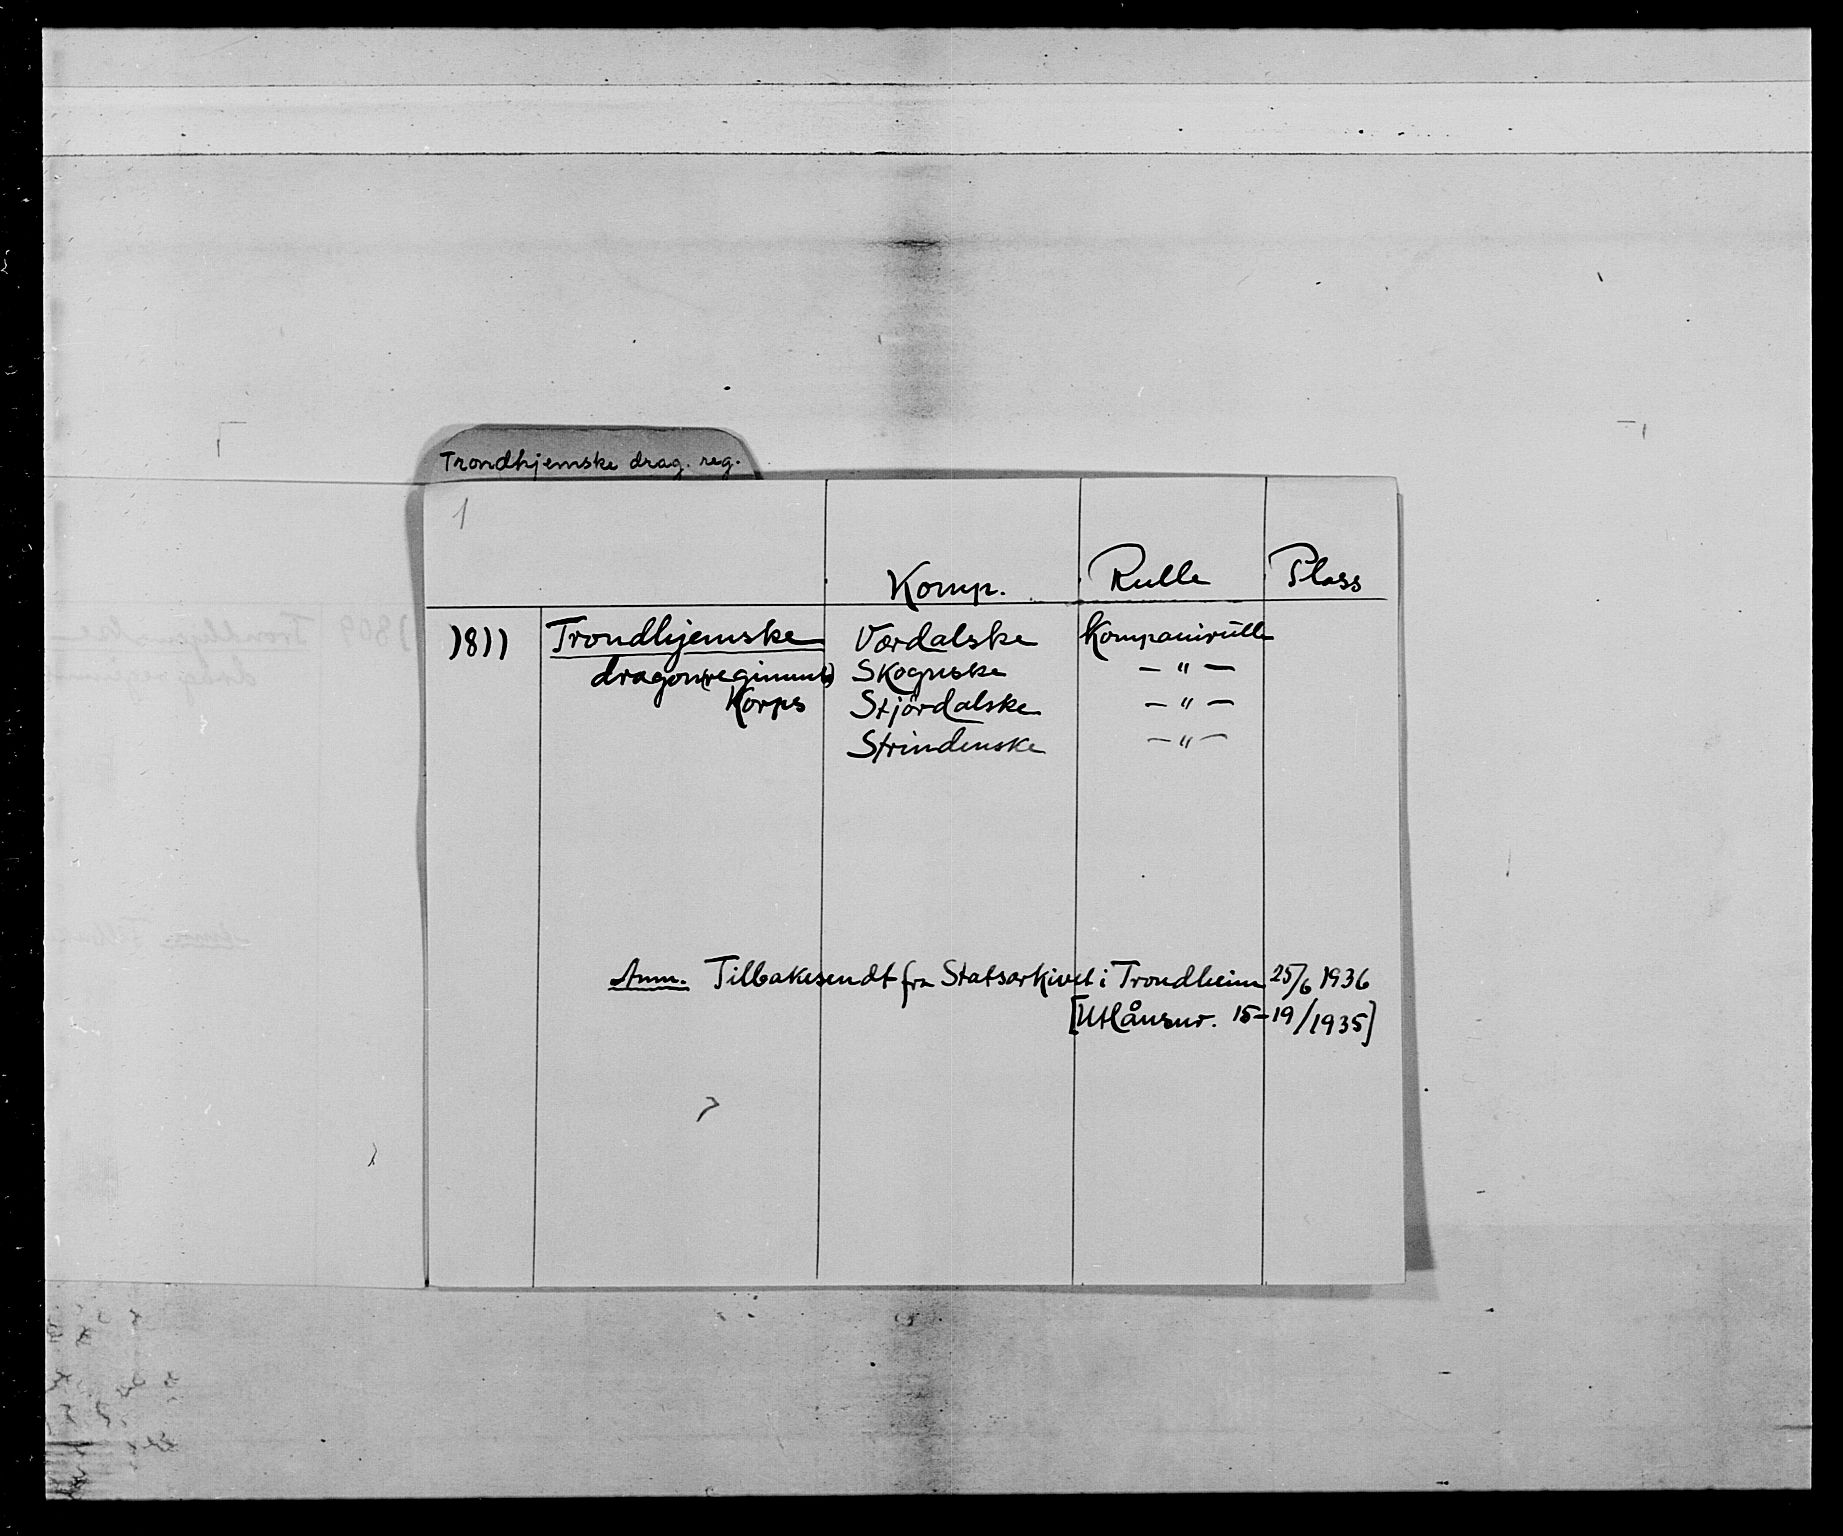 Trondhjemske drag. reg.
1
Komp. Rulle Plass
1811 Trondhjemske Værdalske Kompanirulle
dragon(regiment) Skognske — " —
Korps Stjørdalske — " —
Strindenske — " —
Anm. Tilbakesendt fra Statsarkivet i Trondheim 25/6 1936
[Utlånsnr. 15-19/1935]